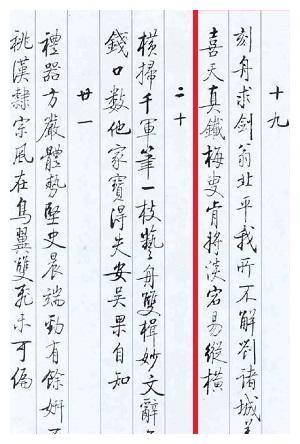 十九
刻舟求劍翁北平我所不解劉諸城差
喜天真鐵梅叟肯將淡宕易縱橫
二十
橫掃千軍筆一枝藝舟雙楫妙文辭
錢口數他家寶得失安吳果自知
廿一
禮器方嚴體勢堅史晨端勁有餘妍
祧漢隸宗風在鳥翼雙飛未可偏